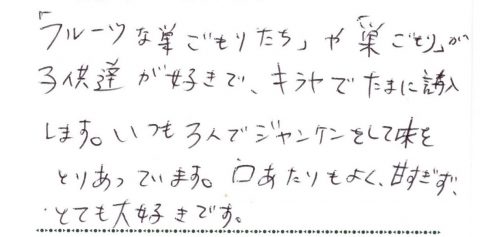 「フルーツな巣ごもりたち」や「巣ごもり」が
子供達が好きで、キラヤでたまに購入
します。いつも3人でジャンケンをして味を
とりあっています。口あたりもよく、甘すぎず、
とても大好きです。